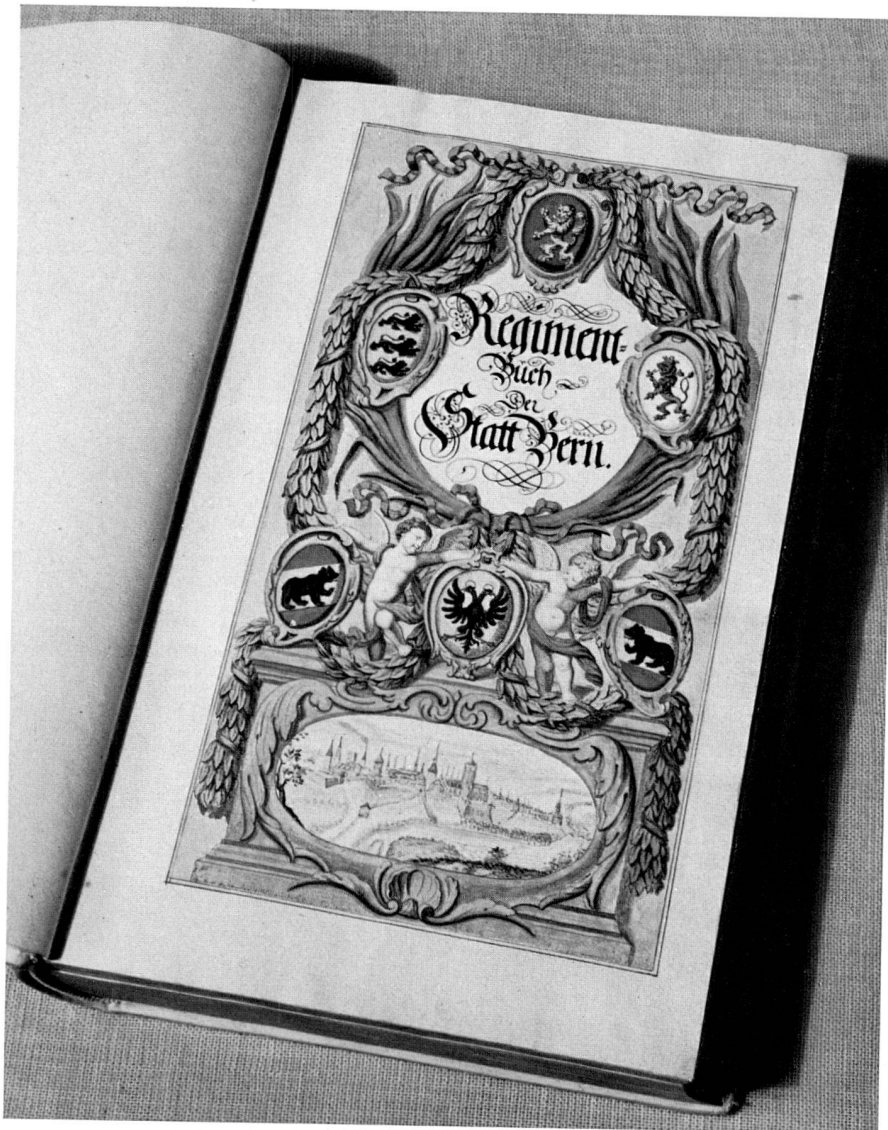 Regiment=
Buch
Der
Statt Bern.